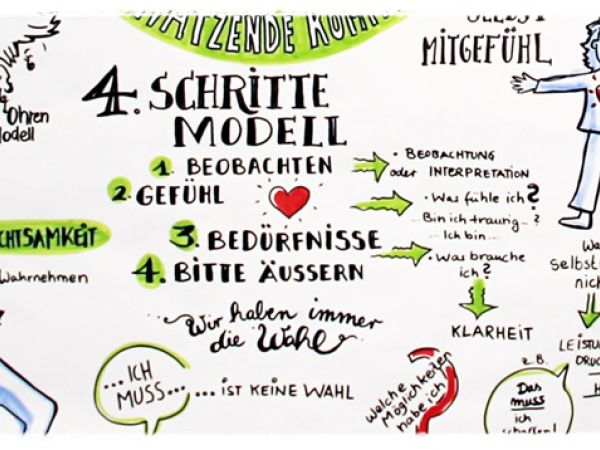 ÄTZENDE
MITGEFÜHL
4. SCHRITTE
MODELL
Ohren
odell
1. BEOBACHTEN
2. GEFÜHL
3. BEDÜRFNISSE
4. BITTE ÄUSSERN
• BEOBACHTUNG
oder INTERPRETATION
• Was fühle ich?
Bin ich traurig...?
... Ich bin...
• Was brauche
ich?
KLARHEIT
CHTSAMKEIT
Wahrnehmen
Wir haben immer
die Wahl
...ICH
MUSS...
... IST KEINE WAHL
Welche
Möglichkeiten
habe ich
Wa
Selbst
nich
LEISTUN
DRUC
z.B.
Das
muss
ich
schaffen!